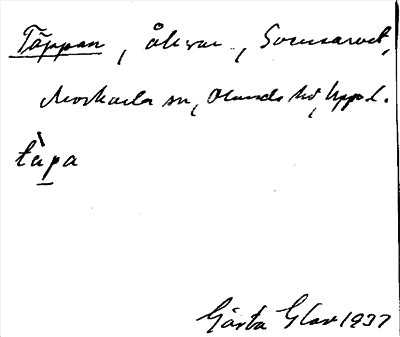 Täppan, åkrar, Sommarvet,
Morkarla sn, Olands hd, Uppl.
tàpa
Gösta Glas 1937